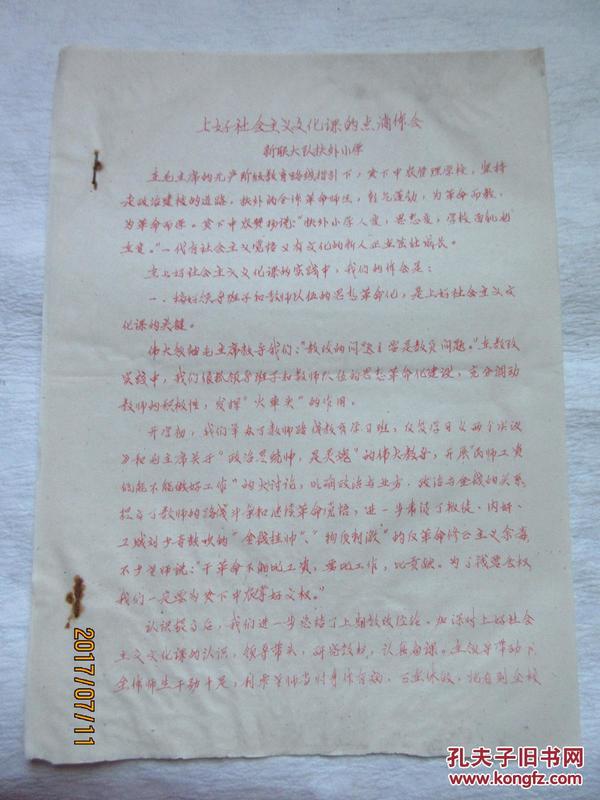 上好社会主义文化课的点滴体会
新联大队扶外小学
在毛主席的无产阶级教育路线指引下，贫下中农管理学校，坚持
走政治建校的道路。扶外的全体革命师生，为革命而教，
为革命而学。贫下中农赞扬说：“扶外小学人变，思想变，学校面貌也
在变。”一代有社会主义觉悟又有文化的新人正在茁壮成长。
在上好社会主义文化课的实践中，我们的体会是：
一、搞好领导班子和教师队伍的思想革命化，是上好社会主义文
化课的关键。
伟大领袖毛主席教导我们：“教改的问题主要是教员问题。”在教改
实践中，我们狠抓领导班子和教师队伍的思想革命化建设，充分调动
教师的积极性，发挥“火车头”的作用。
开学初，我们举办了教师路线教育学习班，反复学习《两个决议
》和毛主席关于“政治是统帅，是灵魂”的伟大教导，开展“民师工资
低能不能做好工作”的大讨论，以明确政治与业务、政治与金钱的关系
提高了教师的路线斗争和继续革命觉悟，进一步肃清了叛徒、内奸、
工贼刘少奇鼓吹的“金钱挂帅”、“物质刺激”的反革命修正主义余毒
不少老师说：“干革命不能比工资，要比工作，比贡献。为了
我们一定要为贫下中农掌好文权。”
认识提高后，我们进一步总结了上期教改经验，加深对上好社会
主义文化课的认识，领导带头，研究教材，认真备课。在领导带动下
全体师生干劲十足，
2017/07/11
孔夫子旧书网
www.kongfz.com